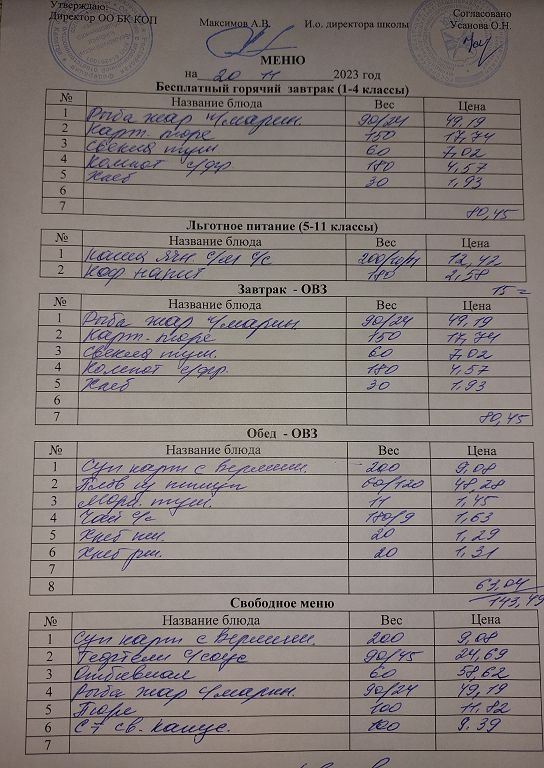 Утверждаю:
Согласовано
Директор ОО БК КОП Максимов А.В. И.о. директора школы Усанова О.Н.
МЕНЮ
на 20 11 2023 год
Бесплатный горячий завтрак (1-4 классы)
№ Название блюда Вес Цена
1 Рыба жар ч/марин. 90/24 49,19
2 карт. пюре 150 17,74
3 свекла туш 60 7,02
4 Компот с/фр 180 4,57
5 Хлеб 30 1,93
6
7 80,45
Льготное питание (5-11 классы)
№ Название блюда Вес Цена
1 каша ячн с/м с/с 12,42
2 Коф напит 180 2,58
15=
Завтрак - ОВЗ
№ Название блюда Вес Цена
1 Рыба жар ч/марин. 90/24 49,19
2 Карт. пюре 150 17,74
3 свекла туш. 60 7,02
4 Компот с/фр. 180 4,57
5 Хлеб 30 1.93
6
7 80,45
Обед - ОВЗ
№ Название блюда Вес Цена
1 Суп карт с вермиш. 200 9,08
2 Плов из птицы 60/120 48,28
3 Морк. туш. 11 1,45
4 Чай с/с 180/9 1,63
5 Хлеб пш. 20 1,29
6 Хлеб рж. 20 1,31
7
8 63,04
143,49
Свободное меню
№ Название блюда Вес Цена
1 Суп карт с вермиш. 200 9,08
2 Тефтели ч/соус 90/45 24,69
3 Отбивная 60 58,62
4 Рыба жар ч/марин. 90/24 49,19
5 Пюре 100 11,82
6 С-т св. капус. 100 9.39
7